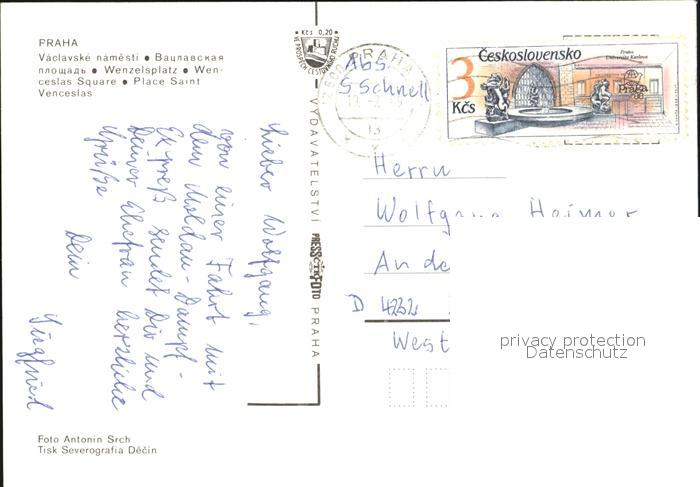 PRAHA
Václavské náměstí ● Вацлавская
площадь ● Wenzelsplatz ● Wen-
ceslas Square ● Place Saint
Venceslas
Kčs 0,20
VE PROSPĚCH CESTOVNÍHO RUCHU
VYDAVATELSTVÍ PRESSFOTO PRAHA
Lieber Wolfgang,
von einer Fahrt mit
dem Moldau-Dampf-
Expreß sendet Dir und
Deiner Ehefrau herzliche
Grüße
Dein
Siegfried
Foto Antonín Srch
Tisk Severografia Děčín
PRAHA
Abs.
S Schnell
Československo
Praha
Universita Karlova
3
Kčs
Praha
Herrn
Wolfgang
An de
D 4232
West
privacy protection
Datenschutz